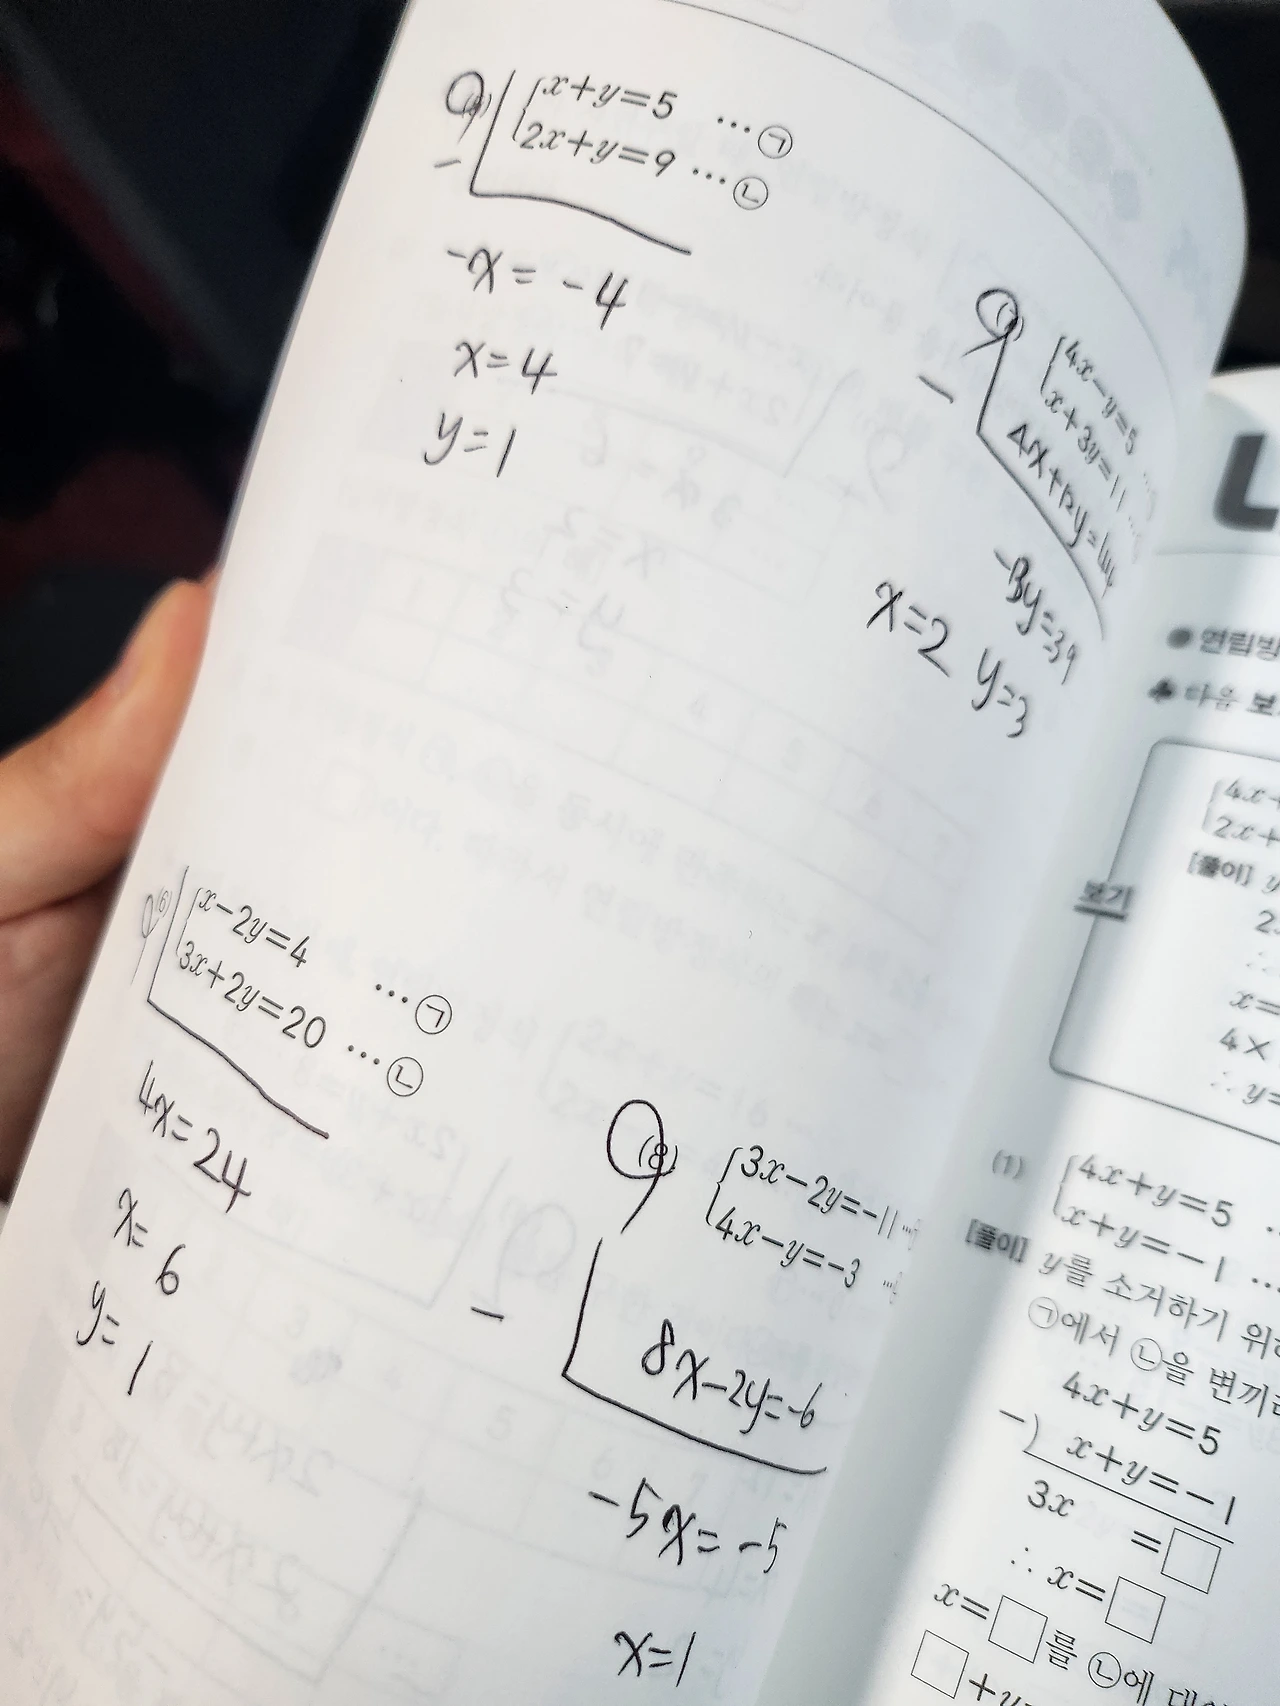 x+y=5 …㉠
2x+y=9 …㉡
−
-x=-4
x=4
y=1
4x−y=5
x+3y=11
−
4x+12y=44
x=2 y=3
(6)
x−2y=4 …㉠
3x+2y=20 …㉡
4x=24
x=6
y=1
(8)
3x−2y=−11
4x−y=−3
−
8x-2y=-6
-5x=-5
x=1
L
● 연립방
♣ 다음 보
보기
4x+
2x+
[풀이] y
x=
4×
∴ y=
(1)
4x+y=5
x+y=−1 …
[풀이] y를 소거하기 위
㉠에서 ㉡을 변끼리
4x+y=5
−) x+y=−1
3x =□
∴ x=□
x=□를 ㉡에
□+y